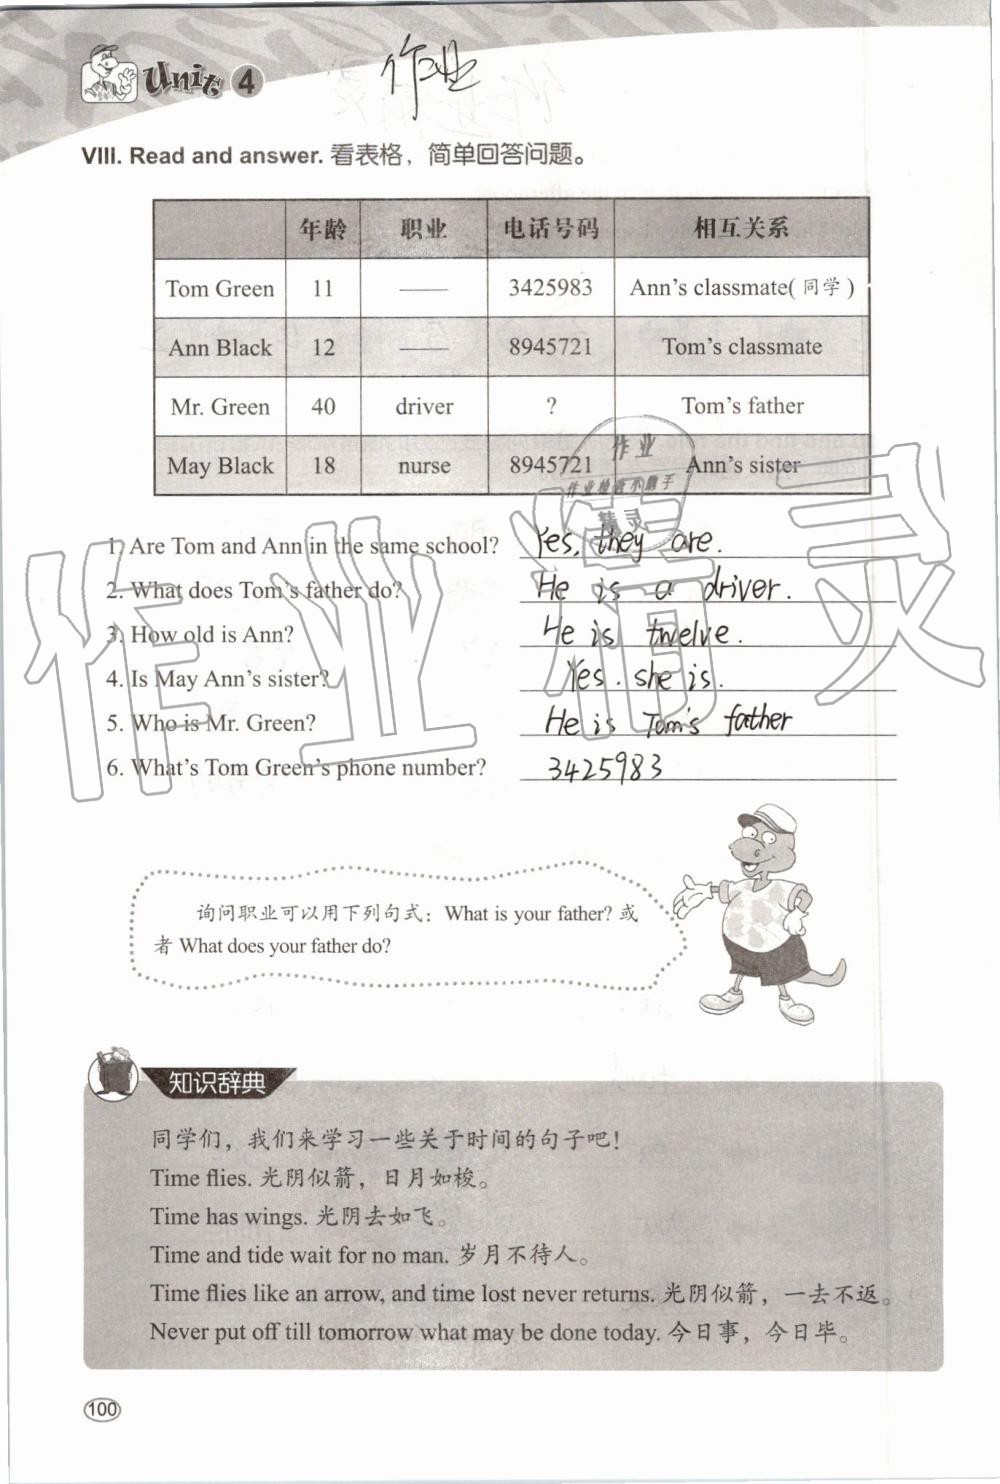 Unit 4
作业
VIII. Read and answer. 看表格，简单回答问题。
年龄 职业 电话号码 相互关系
Tom Green 11 —— 3425983 Ann's classmate(同学)
Ann Black 12 —— 8945721 Tom's classmate
Mr. Green 40 driver ? Tom's father
May Black 18 nurse 8945721 Ann's sister
作业
作业检查小帮手
精灵
1. Are Tom and Ann in the same school? Yes, they are.
2. What does Tom's father do? He is a driver.
3. How old is Ann? He is twelve.
4. Is May Ann's sister? Yes. she is.
5. Who is Mr. Green? He is Tom's father
6. What's Tom Green's phone number? 3425983
作业精灵
询问职业可以用下列句式：What is your father? 或
者 What does your father do?
知识辞典
同学们，我们来学习一些关于时间的句子吧！
Time flies. 光阴似箭，日月如梭。
Time has wings. 光阴去如飞。
Time and tide wait for no man. 岁月不待人。
Time flies like an arrow, and time lost never returns. 光阴似箭，一去不返。
Never put off till tomorrow what may be done today. 今日事，今日毕。
100